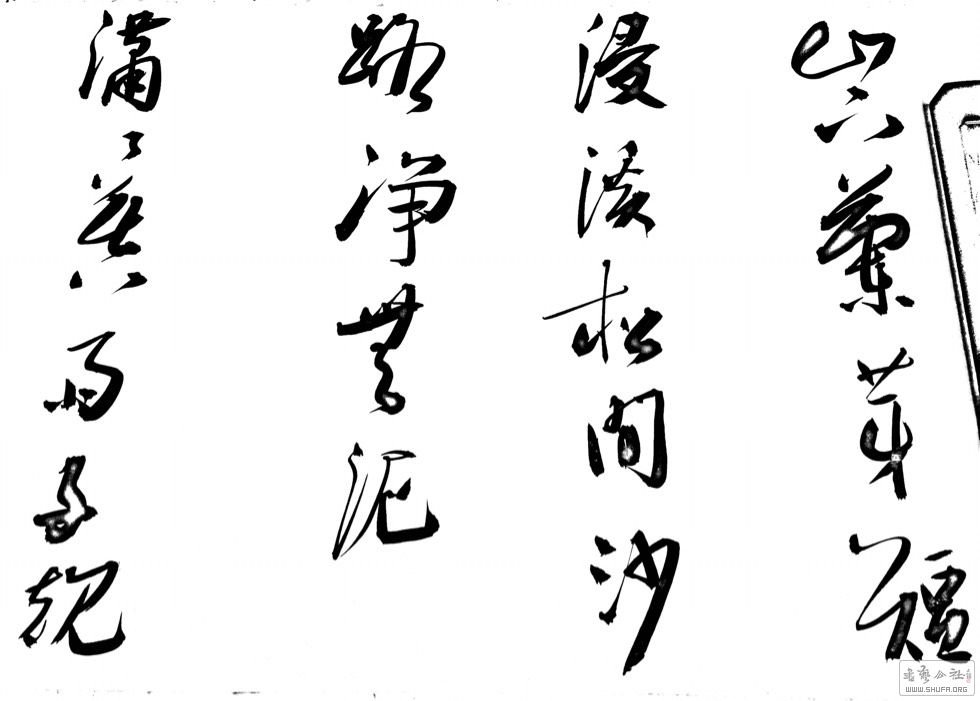 山下蘭芽短
浸溪松間沙
路淨無泥
瀟〻暮雨子規
書藝公社
WWW.SHUFA.ORG